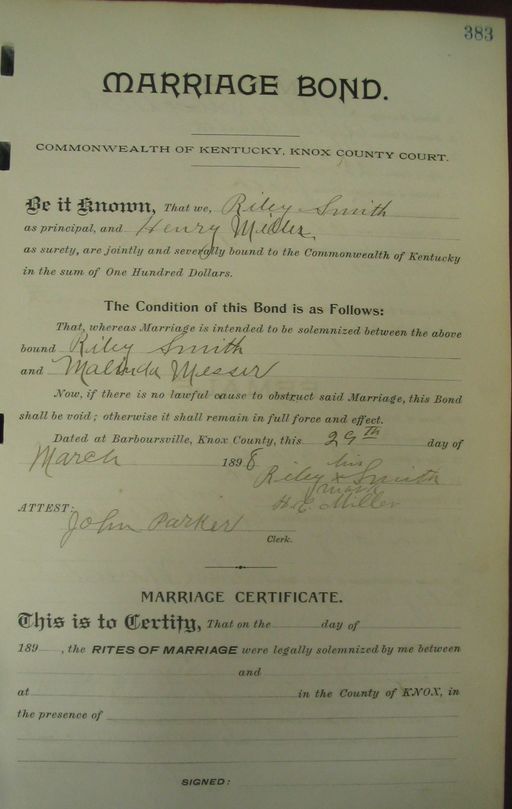 383
MARRIAGE BOND.
COMMONWEALTH OF KENTUCKY, KNOX COUNTY COURT.
Be it Known, That we, Riley Smith
as principal, and Henry Miller
as surety, are jointly and severally bound to the Commonwealth of Kentucky
in the sum of One Hundred Dollars.
The Condition of this Bond is as Follows:
That, whereas Marriage is intended to be solemnized between the above
bound Riley Smith
and Malinda Messer
Now, if there is no lawful cause to obstruct said Marriage, this Bond
shall be void; otherwise it shall remain in full force and effect.
Dated at Barboursville, Knox County, this 29th day of
March 1898
his
Riley x Smith
mark
H. C. Miller
ATTEST:
John Parker
Clerk.
MARRIAGE CERTIFICATE.
This is to Certify, That on the day of
189 , the RITES OF MARRIAGE were legally solemnized by me between
and
at in the County of KNOX, in
the presence of
SIGNED: